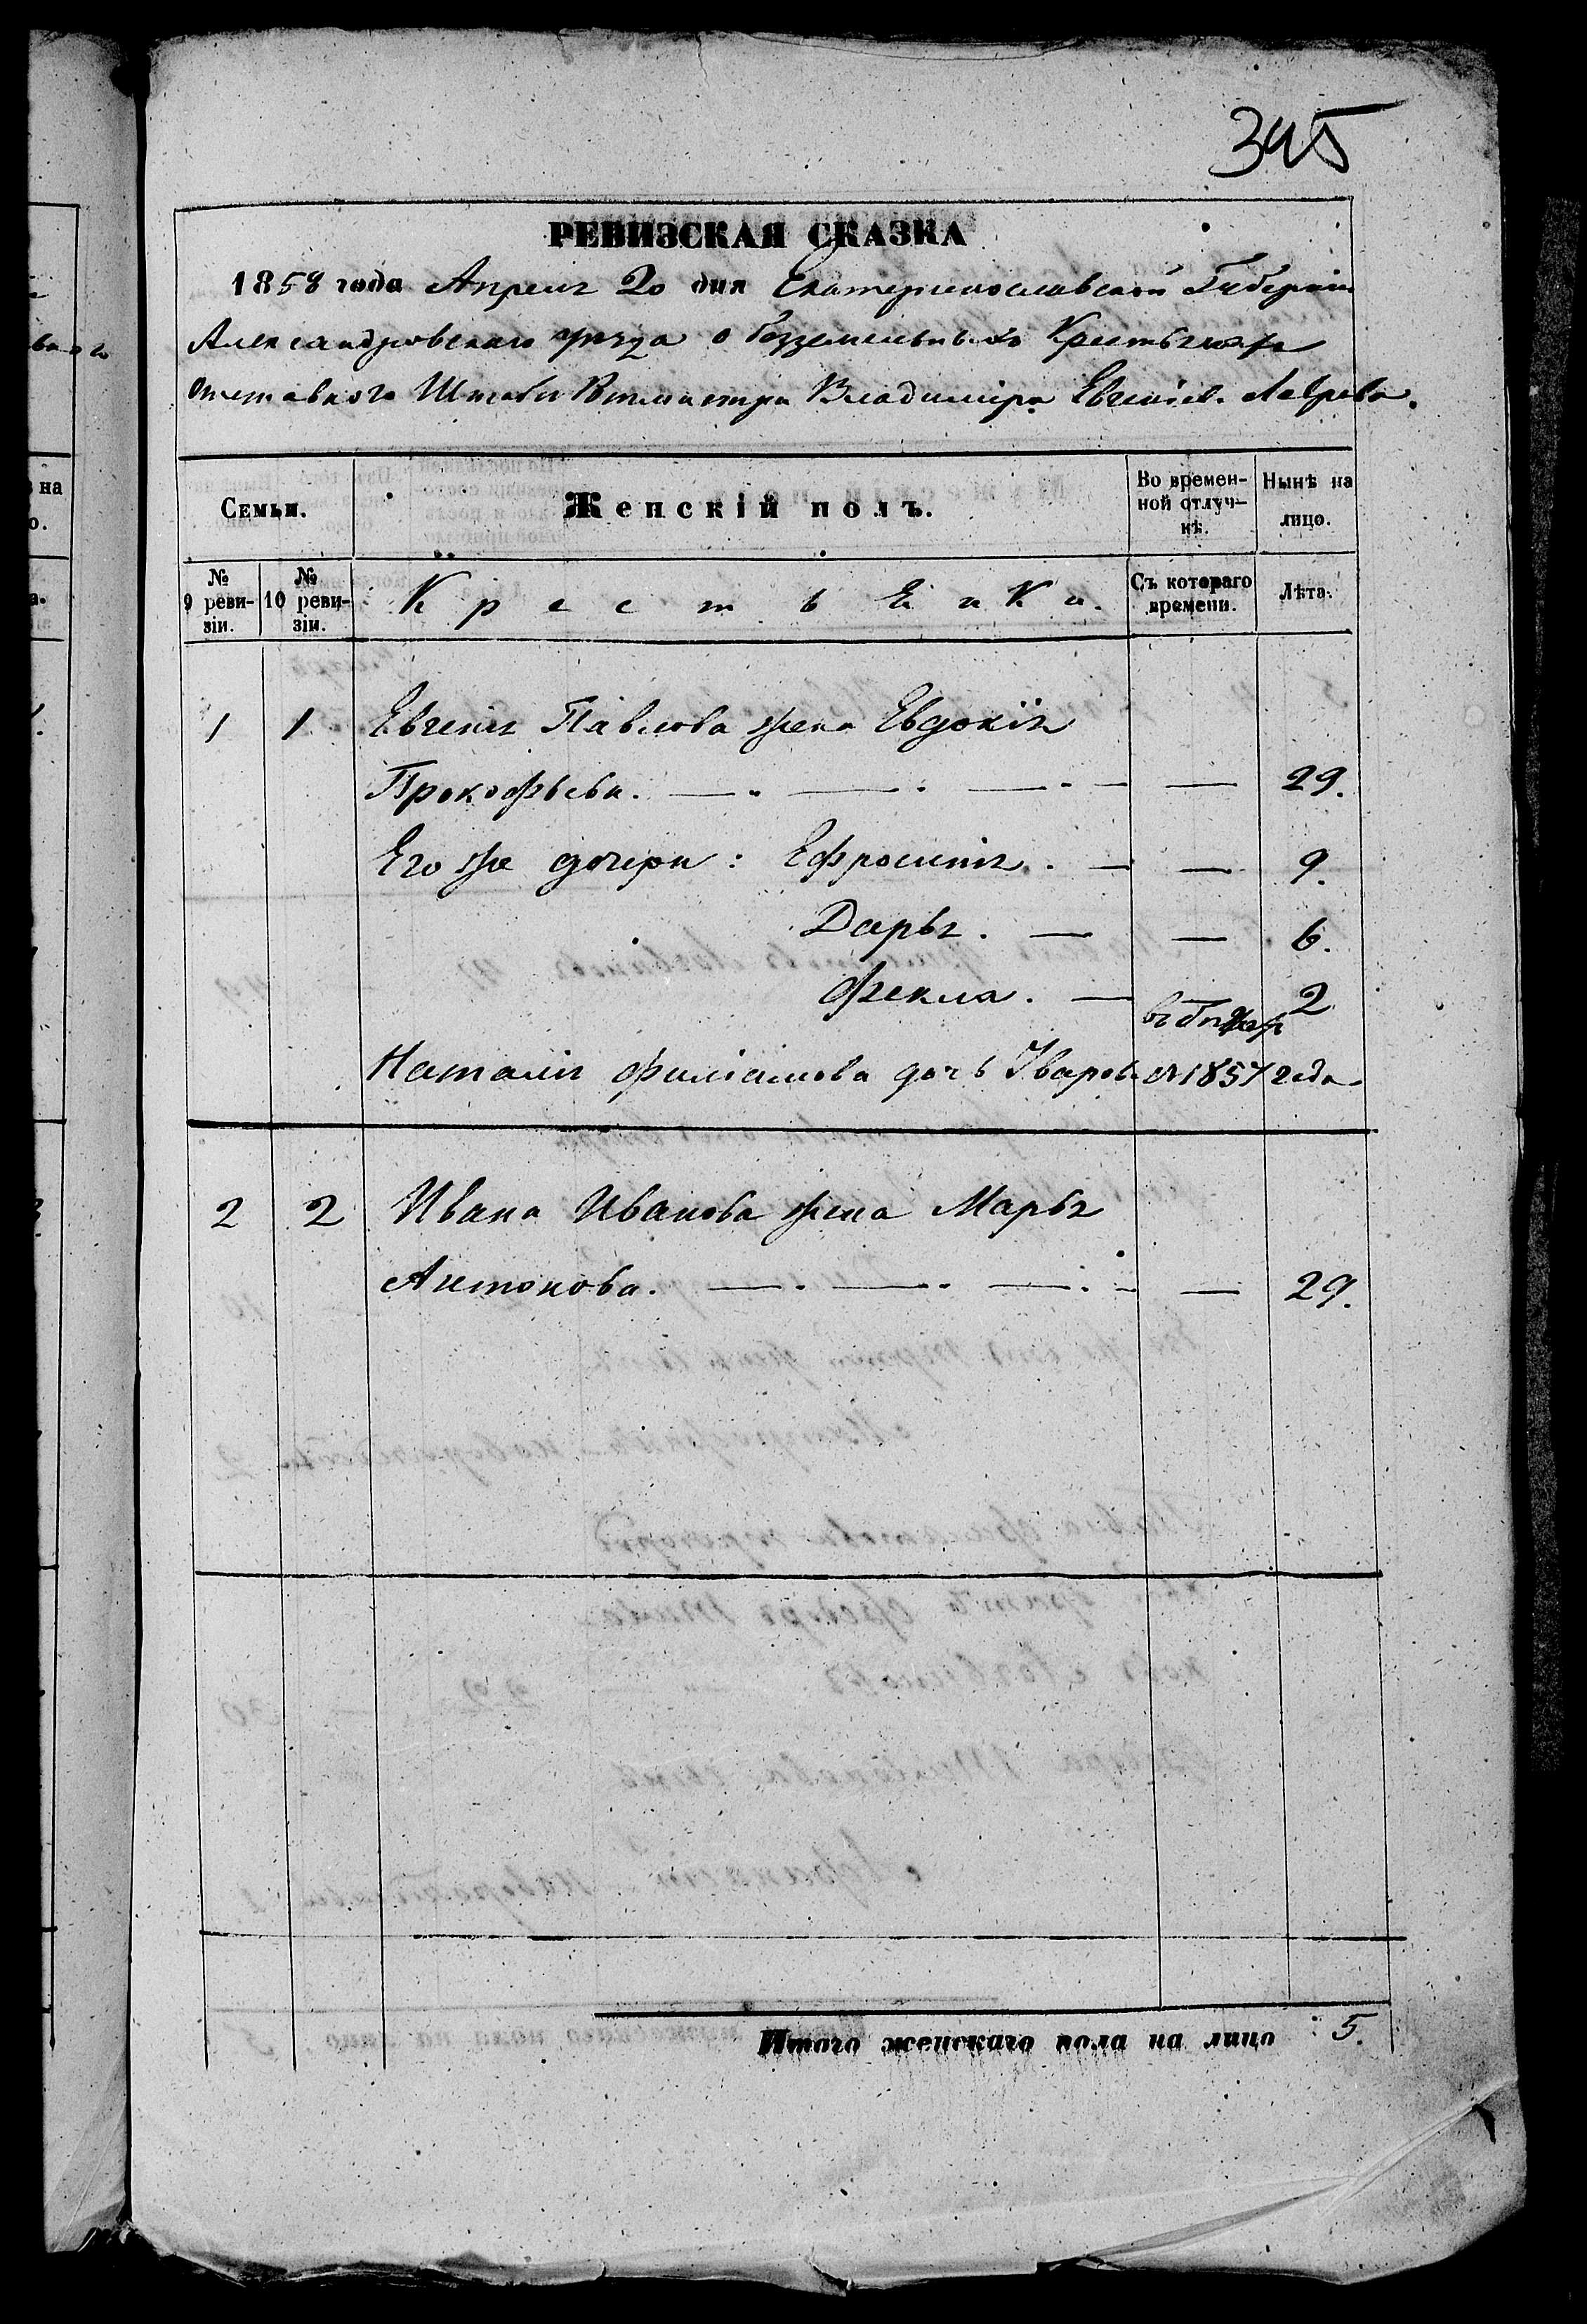 345
РЕВИЗСКАЯ СКАЗКА
1858 года Апреля 20 дня Екатеринославской Губернiи
Александровскаго уѣзда о безземельныхъ Крестьянахъ
отставного Штабъ Ротмистра Владимiра Евгенiев.
Семьи. Женскiй полъ. Во времен- Нынѣ на
ной отлуч- лицо.
кѣ.
№ 9 реви- зiи. № 10 реви- зiи. Крестьянки. Съ котораго времени. Лѣта.
1 1 Евгенiя Павлова жена Евдокiя
Прокофьева. — — — — 29.
Его же дочери: Ефросинiя. — — 9.
Дарья. — — 6.
Фекла. — 2
въ бѣгахъ
Наталiя дочь съ 1857 года
2 2 Ивана Иванова жена Марья
Антонова. — — — — 29.
Итого женскаго пола на лицо 5.